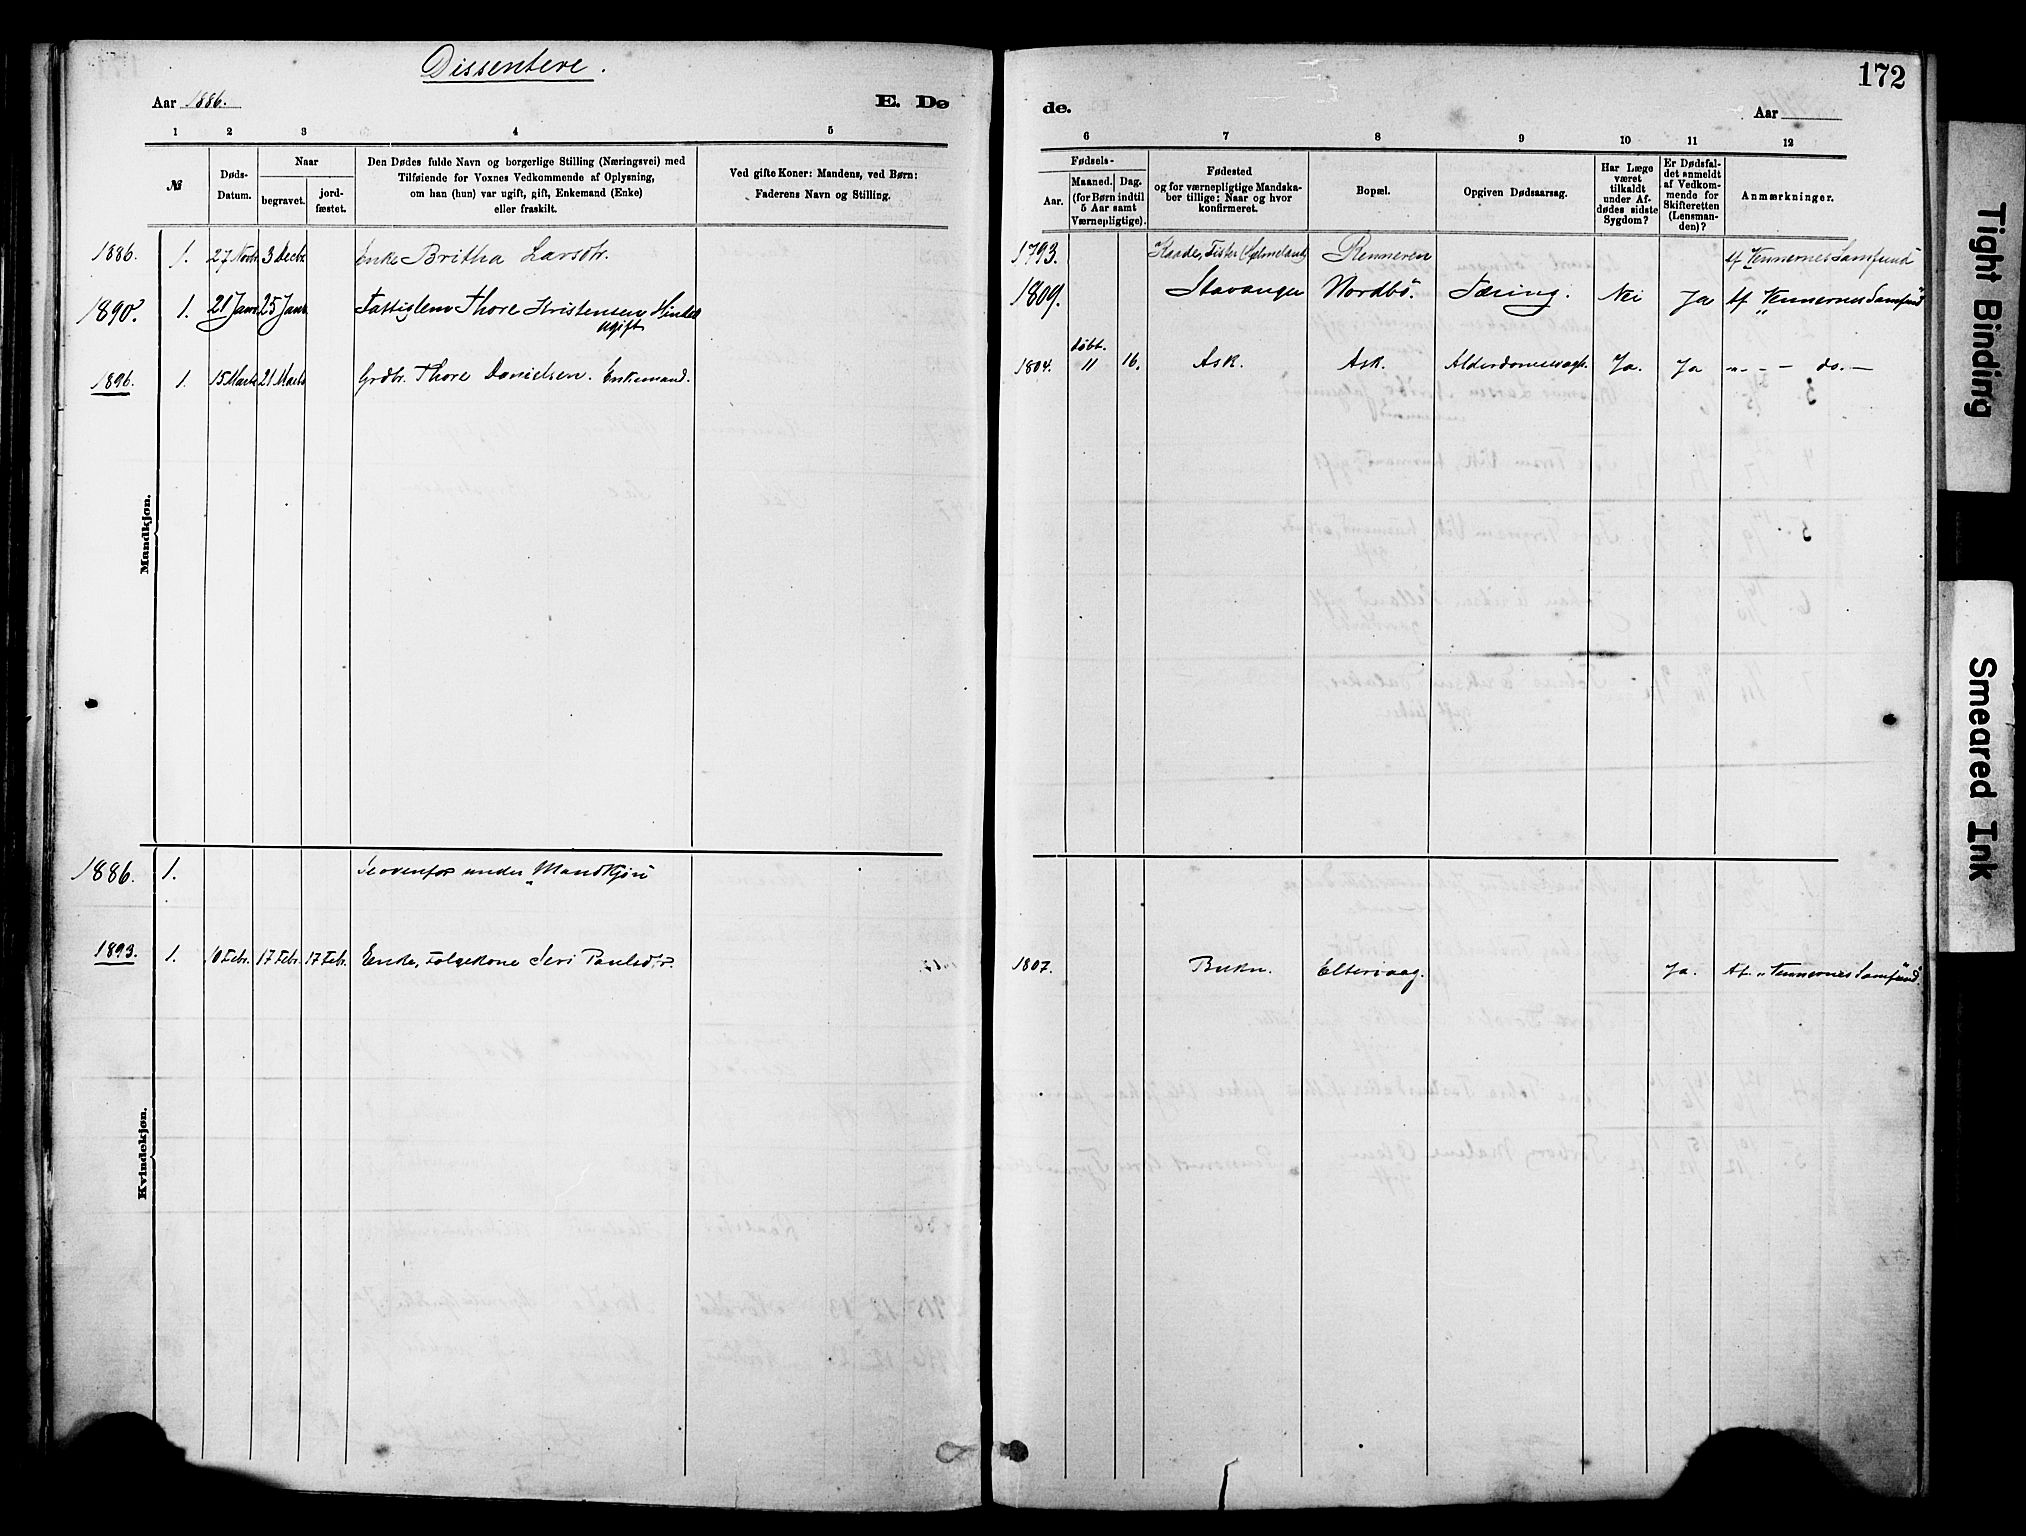 Dissentere.
172
Aar 1886.
E. Dø
de.
Aar
1 2 3 4 5 6 7 8 9 10 11 12
№
Døds-
Datum.
Naar
begravet.
jord-
fæstet.
Den Dødes fulde Navn og borgerlige Stilling (Næringsvei) med
Tilføiende for Voxnes Vedkommende af Oplysning,
om han (hun) var ugift, gift, Enkemand (Enke)
eller fraskilt.
Ved gifte Koner: Mandens, ved Børn:
Faderens Navn og Stilling.
Fødsels-
Aar.
Maaned. Dag.
(for Børn indtil
5 Aar samt
Værnepligtige).
Fødested
og for værnepligtige Mandska-
ber tillige: Naar og hvor
konfirmeret.
Bopæl.
Opgiven Dødsaarsag.
Har Læge
været
tilkaldt
under Af-
dødes sidste
Sygdom?
Er Dødsfal-
det anmeldt
af Vedkom-
mende for
Skifteretten
(Lensman-
den)?
Anmærkninger.
Mandkjøn.
1886. 1. 27 Novbr 3 Decbr Enke Britha Larsdtr. 1793. Renneren Af „Vennernes Samfund"
1890. 1. 21 Janr 25 Janr Fattiglem Thore Kristensen 1809. Stavanger Nordbö. Tæring. Nei Ja Af „Vennernes Samfund"
ugift
döbt.
1896. 1. 15 Marts 21 Marts Grdbr. Thore Danielsen. Enkemand. 1804. 11 16. Ask. Ask. Ja. Ja „ - - do. -
Kvindekjøn.
1886. 1. Se ovenfor under „Mandkjøn"
1893. 1. 10 Febr. 17 Febr. 17 Febr. Enke, Folgekone Seri Paulsdtr. 1807. Bukn. Eltervaag. Ja. Af „Vennernes Samfund".
Tight Binding
Smeared Ink